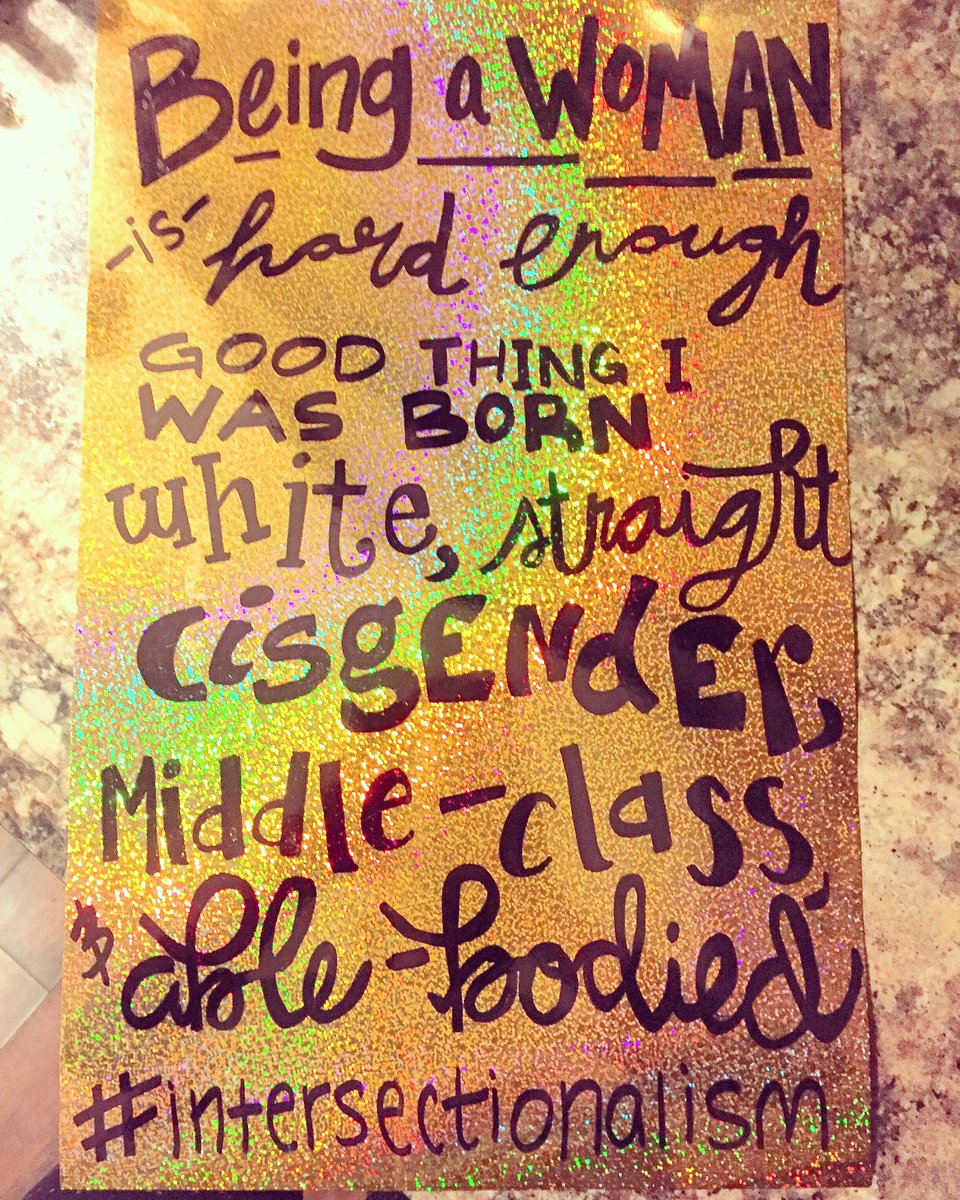 Being a WOMAN
-is- hard enough
GOOD THING I
WAS BORN
white, straight
cisgENdEr,
Middle-class,
& able-bodied
#intersectionalism